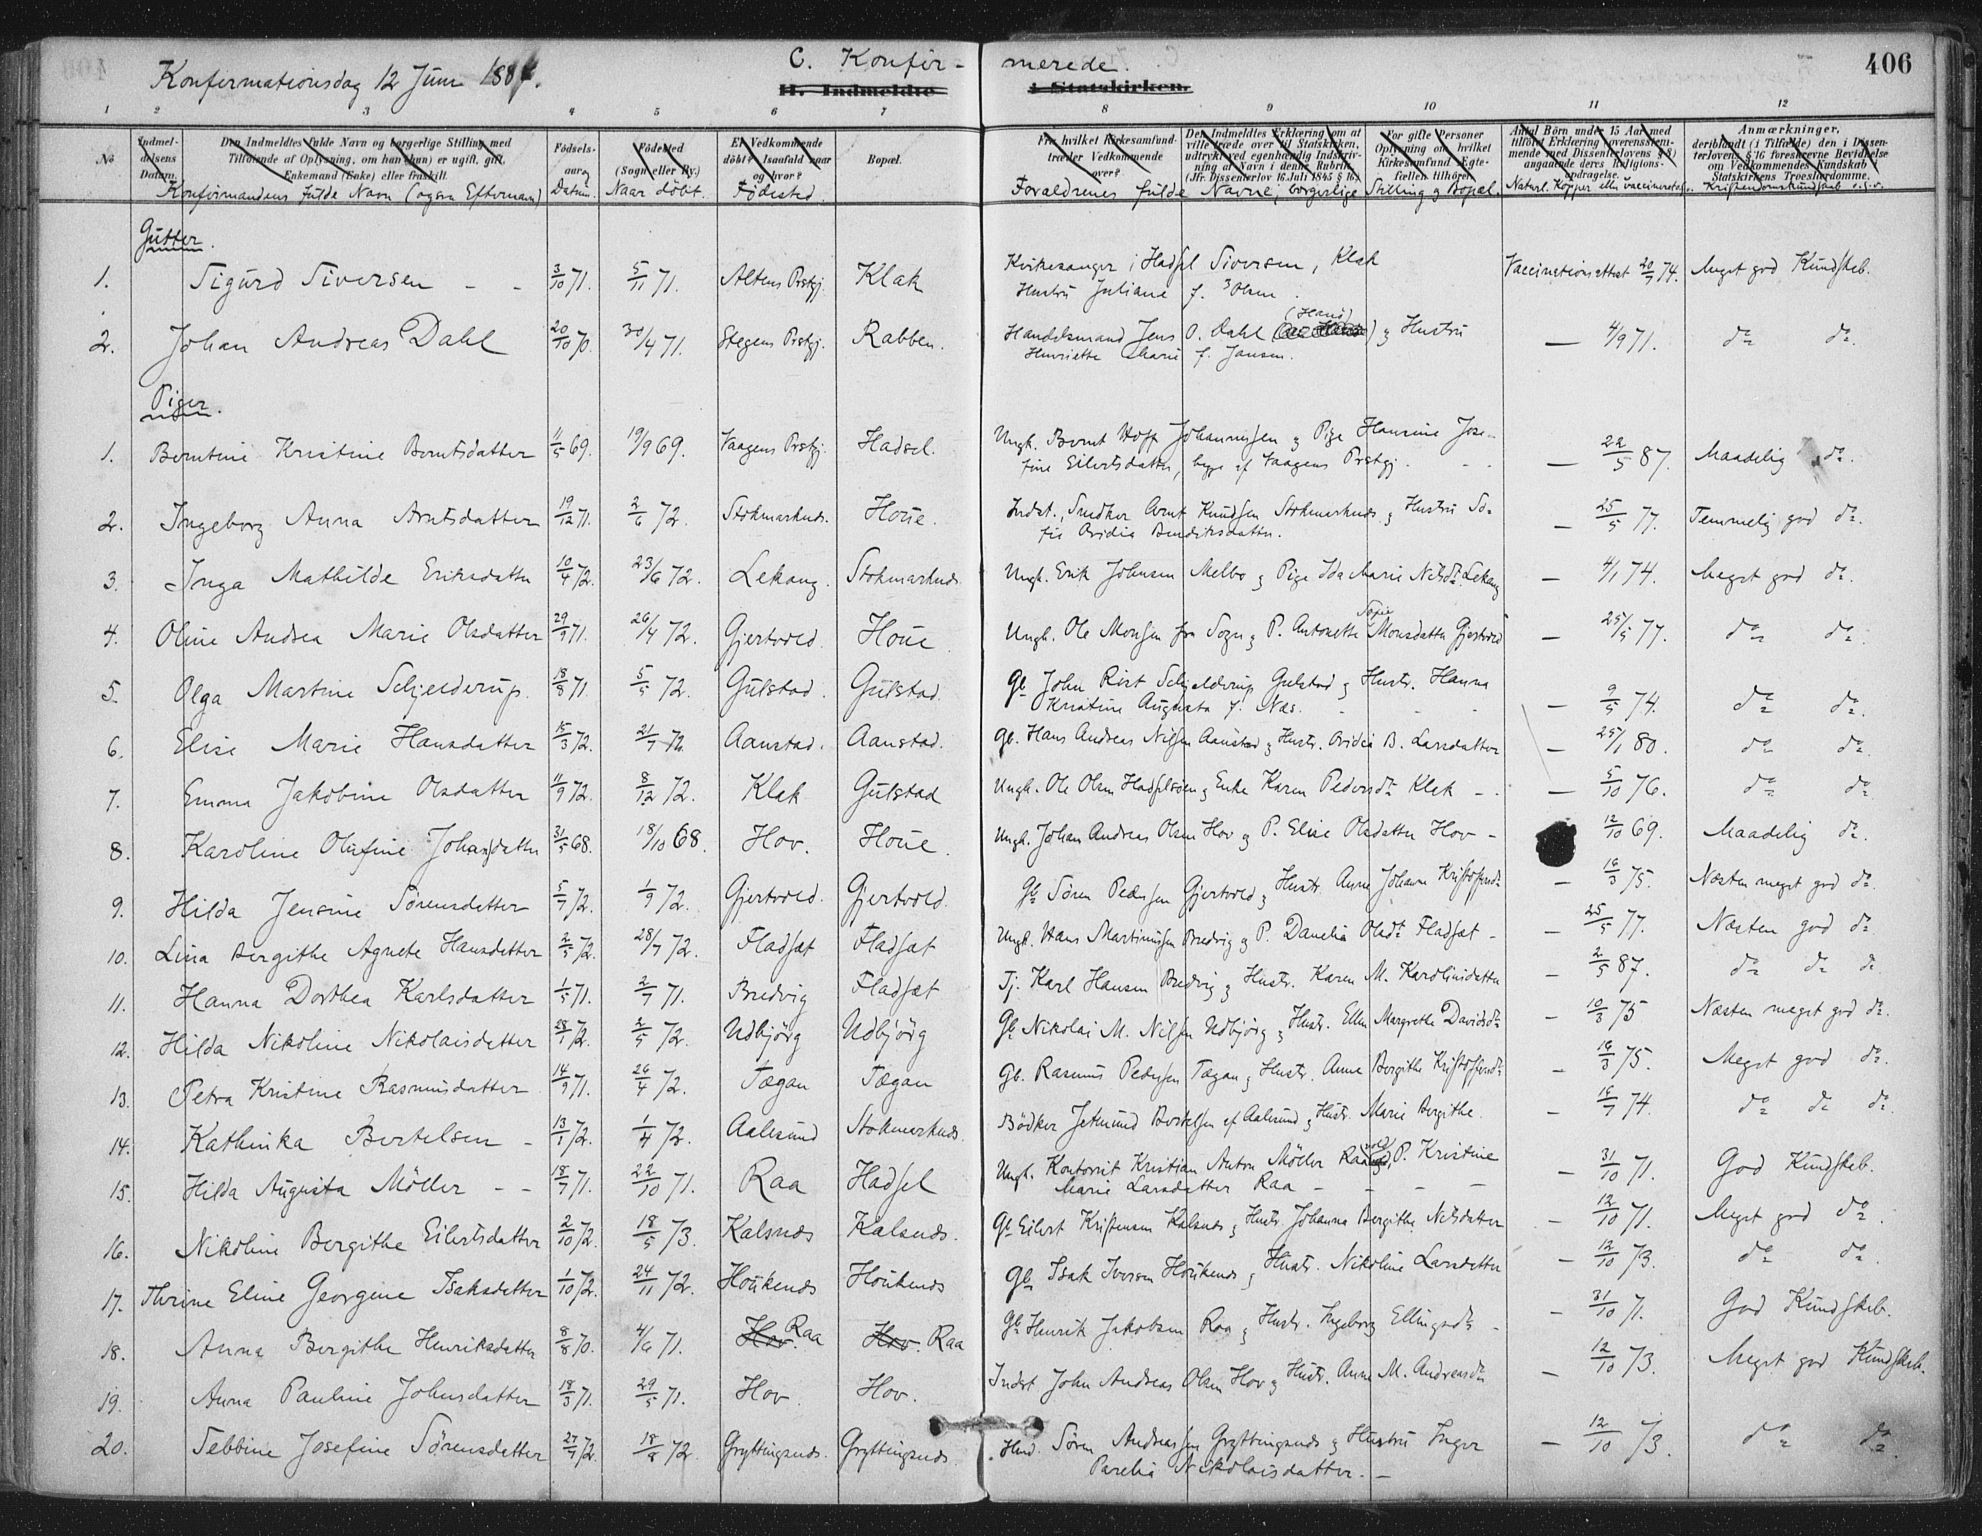 406
Konfirmationsdag 12 Juni 1887.
C. Konfir- merede.
H. Indmeldte i Statskirken.
1 2 3 4 5 6 7 8 9 10 11 12
No
Indmeldelsens Datum.
Den Indmeldtes fulde Navn og borgerlige Stilling med Tilføiende af Oplysning, om han (hun) er ugift, gift, Enkemand (Enke) eller fraskilt.
Fødsels- aar og Datum.
Fødested (Sogn eller By.)
Er Vedkommende döbt? Isaafald naar og hvor?
Bopæl.
Fra hvilket Kirkesamfund træder Vedkommende over?
Den Indmeldtes Erklæring om at ville træde over til Statskirken, udtrykt ved egenhændig Indskrivning af Navn i denne Rubrik. (Jfr. Dissenterlov 16 Juli 1845 § 16)
For gifte Personer Oplysning om hvilket Kirkesamfund Ægtefællen tilhører.
Antal Börn under 15 Aar med tilföiet Erklæring (overensstemmende med Dissenterlovens § 8) angaaende deres Religionsopdragelse.
Anmærkninger, deriblandt (i Tilfælde) den i Dissenterlovens § 16 foreskrevne Bevidnelse om Vedkommendes Kundskab i Statskirkens Troeslærdomme.
Konfirmandens fulde Navn (ogsaa Efternavn) Naar döbt. Födested. Forældrenes fulde Navne, borgerlige Stilling og Bopæl. Naturl. Kopper eller vaccineret. Kristendomskundskab o.s.v.
Gutter.
1. Sigurd Siversen - - 3/10 71. 5/11 71. Altens Prstgj. Klak Kirkesanger i Hadsel Siversen, Klak Vaccinationsattest 20/7 74. Meget god Kundskab.
Hustru Juliane f. Olsen.
2. Johan Andreas Dahl 20/10 70. 30/4 71. Stegens Prstgj. Rabben. Handelsmand Jens O. Dahl (Hand) og Hustru — 4/9 71. do do.
Henriette Marie f. Jansen.
Piger.
1. Berntine Kristine Berntsdatter 11/5 69. 19/9 69. Vaagens Prstgj. Hadsel. Ungk. Bernt Hoff Johannessen og Pige Hansine Jose- — 22/5 87. Maadelig do.
fine Eilertsdatter, begge af Vaagens Prstgj.
2. Ingeborg Anna Arntsdatter 19/12 71. 2/6 72. Stokmarknds. Houe. Indst., Snedker Arnt Knudsen Stokmarknds og Hustru So- — 25/5 77. Temmelig god do.
fie Ovidia Bendiksdatter.
3. Inga Mathilde Eriksdatter 10/4 72. 23/6 72. Lekang. Stokmarknds. Ungk. Erik Johnsen Melbo og Pige Ida Marie Nilsdr Lekang — 4/1 74. Meget god do.
4. Oline Andrea Marie Olsdatter 29/9 71. 26/4 72. Gjertvold. Houe Ungk. Ole Monsen fra Sogn og P. Antonette Sofie Monsdatter Gjertvold — 25/5 77. do do.
5. Olga Martine Schjelderup. 18/8 71. 5/5 72. Gulstad. Gulstad. Gb John Rist Schjelderup Gulstad og Hustr. Hanna — 9/5 74. do do.
Kristine Augusta f. Næs.
6. Elise Marie Hansdatter 15/3 72. 21/7 72. Aanstad. Aanstad. Gb. Hans Andreas Nilsen Aanstad og Hustr. Ovidia B. Larsdatter — 25/1 80. do do.
7. Emma Jakobine Olsdatter 11/9 72. 8/12 72. Klak Gulstad Ungk. Ole Olsen Hadselöen og Enke Karen Pedersdr Klak - - — 5/10 76. do do
8. Karoline Olufine Johansdatter 31/5 68. 18/10 68. Hov. Houe. Ungk. Johan Andreas Olsen Hov og P. Elise Olsdatter Hov - 12/10 69. Maadelig do.
9. Hilda Jensine Sörensdatter 5/7 72. 1/9 72. Gjertvold. Gjertvold. Gb Sören Pedersen Gjertvold og Hustr. Anne Johanna Kristoffersdr — 16/3 75. Næsten meget god do.
10. Lina Bergithe Agnete Hansdatter 2/5 72. 28/7 72. Fladsæt Fladsæt Ungk. Hans Martinussen Bredvig og P. Danelia Olsdr Fladsæt - — 25/5 77. Næsten god do
11. Hanna Dorthea Karlsdatter 1/5 71. 2/7 71. Bredvig Fladsæt Tj. Karl Hansen Bredvig og Hustr. Karen M. Karolinsdatter — 2/5 87. do do do
12. Hilda Nikoline Nikolaisdatter 28/1 72. 2/5 72. Udbjörg Udbjörg Gb Nikolai M. Nilsen Udbjörg og Hustr. Ellen Margrethe Davidsdr — 10/3 75 Næsten meget god do.
13. Petra Kristine Rasmusdatter 14/9 71. 26/4 72. Tægan Tægan Gb. Rasmus Pedersen Tægan og Hustr. Anne Bergithe Kristoffersdr — 16/3 75. Meget god do.
14. Kathinka Bertelsen - 13/1 72. 1/4 72. Aalesund Stokmarknds. Bödker Jetmund Bertelsen af Aalesund og Hustr. Marie Bergithe. — 16/7 74. do do do.
15. Hilda Augusta Möller - - 18/7 71. 22/10 71. Raa Hadsel Ungk. Kontorist Kristian Anton Möller Raa og P. Kristine — 31/10 71. God Kundskab.
Marie Larsdatter Raa - - - -
16. Nikoline Bergithe Eilertsdatter 2/10 72. 18/5 73. Kalsnes Kalsnes. Gb Eilert Kristensen Kalsnes og Hustr. Johanna Bergithe Nilsdatter — 12/10 71. Meget god do.
17. Thrine Eline Georgine Isaksdatter 1/10 72. 24/11 72. Houkenes Houkenes Gb Isak Iversen Houkenes og Hustr. Nikoline Larsdatter — 12/10 73. do do.
18. Anna Bergithe Henriksdatter 8/8 70. 4/6 71. Hov. Raa Hov. Raa Gb Henrik Jakobsen Raa og Hustr. Ingeborg Ellingsdr - — 31/10 71. God Kundskab.
19. Anna Pauline Johnsdatter 18/3 71. 29/5 71. Hov. Hov. Indst John Andreas Olsen Hov og Hustr. Anne M. Andreasdr — 12/10 73. Meget god Kundskab.
20. Sebbine Josefine Sörensdatter 27/7 72. 18/8 72. Gryttingsnds. Gryttingsnds. Hmd. Sören Andreassen Gryttingsnds og Hustru Inger — 12/10 73. do do.
Parelia Nikolaisdatter. -